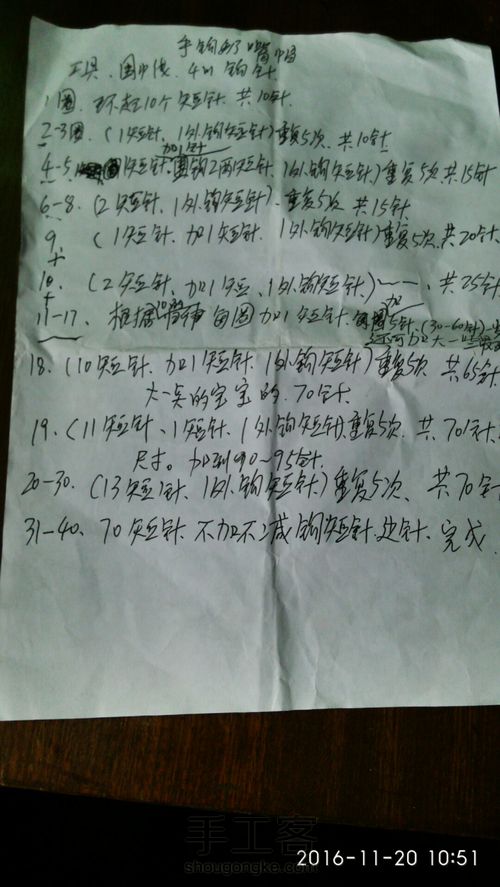 手钩
工具、4 钩针
1圈、环起10个短针、共10针
2-3圈、(1短针、1外钩短针)重复5次、共10针
加1针
4-5、短针、圈钩2两短针、1外钩短针)重复5次、共15针
6-8、(2短针、1外钩短针)、重复5次 共15针
9、(1短针、加1短针、1外钩短针)重复5次、共20针
10、(2短针、加1短、1外钩短针)——、共25针
11-17、根据 每圈加1短针、每圈5针、(30-60针)
还可加大一些
18、(10短针、加1短针、1外钩短针)重复5次 共65针
大一点的宝宝的、70针、
19、(11短针、1短针、1外钩短针)重复5次、共70针、
尺寸。加到90~95针、
20-30、(13短针、1外钩短针)重复5次、共70针
31-40、70短针、不加不减钩短针边针、完成
手工客
shougongke.com
2016-11-20 10:51